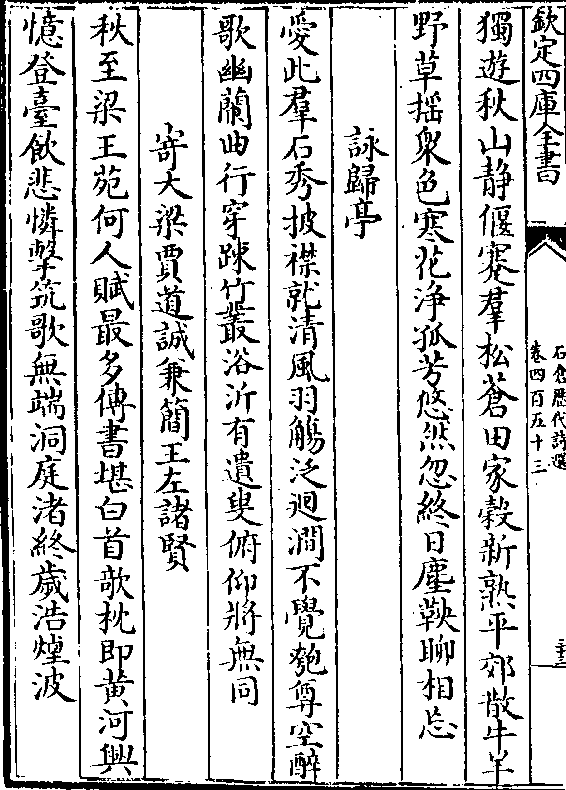 欽定四庫全書
石倉歷代詩選
卷四百五十三
獨遊秋山靜偃蹇羣松蒼田家穀新熟平郊散牛羊
野草揺衆色寒花浄孤芳悠然忽終日塵鞅聊相忘
詠歸亭
愛此羣石秀披襟就清風羽觴泛迴澗不覺匏尊空醉
歌幽蘭曲行穿踈竹叢浴沂有遺叟俯仰將無同
寄大梁賈道誠兼簡王左諸賢
秋至梁王苑何人賦最多傳書堪白首欹枕即黄河興
憶登臺飲悲憐擊筑歌無端洞庭渚終歲浩煙波